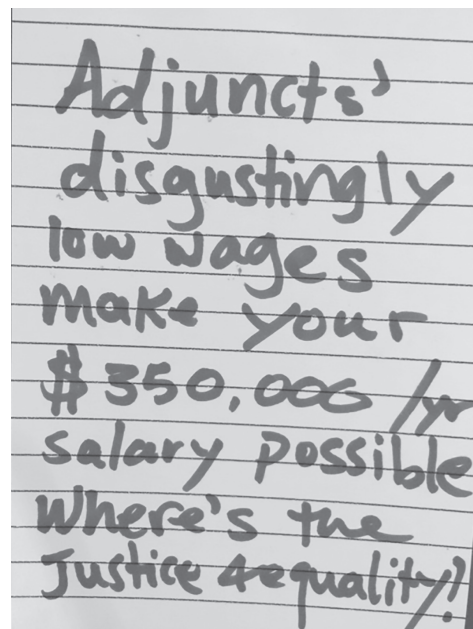 Adjuncts'
disgustingly
low wages
make your
$350,000 /yr
salary possible
Where's the
Justice &equality!?